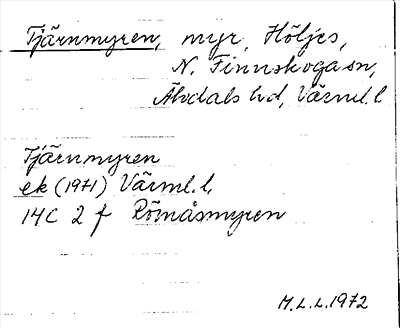 Tjärnmyren, myr, Höljes,
N. Finnskoga sn,
Älvdals hd, Värml. l
Tjärnmyren
ek (1971) Värml. l.
14C 2 f Römåsmyren
M.L.L. 1972